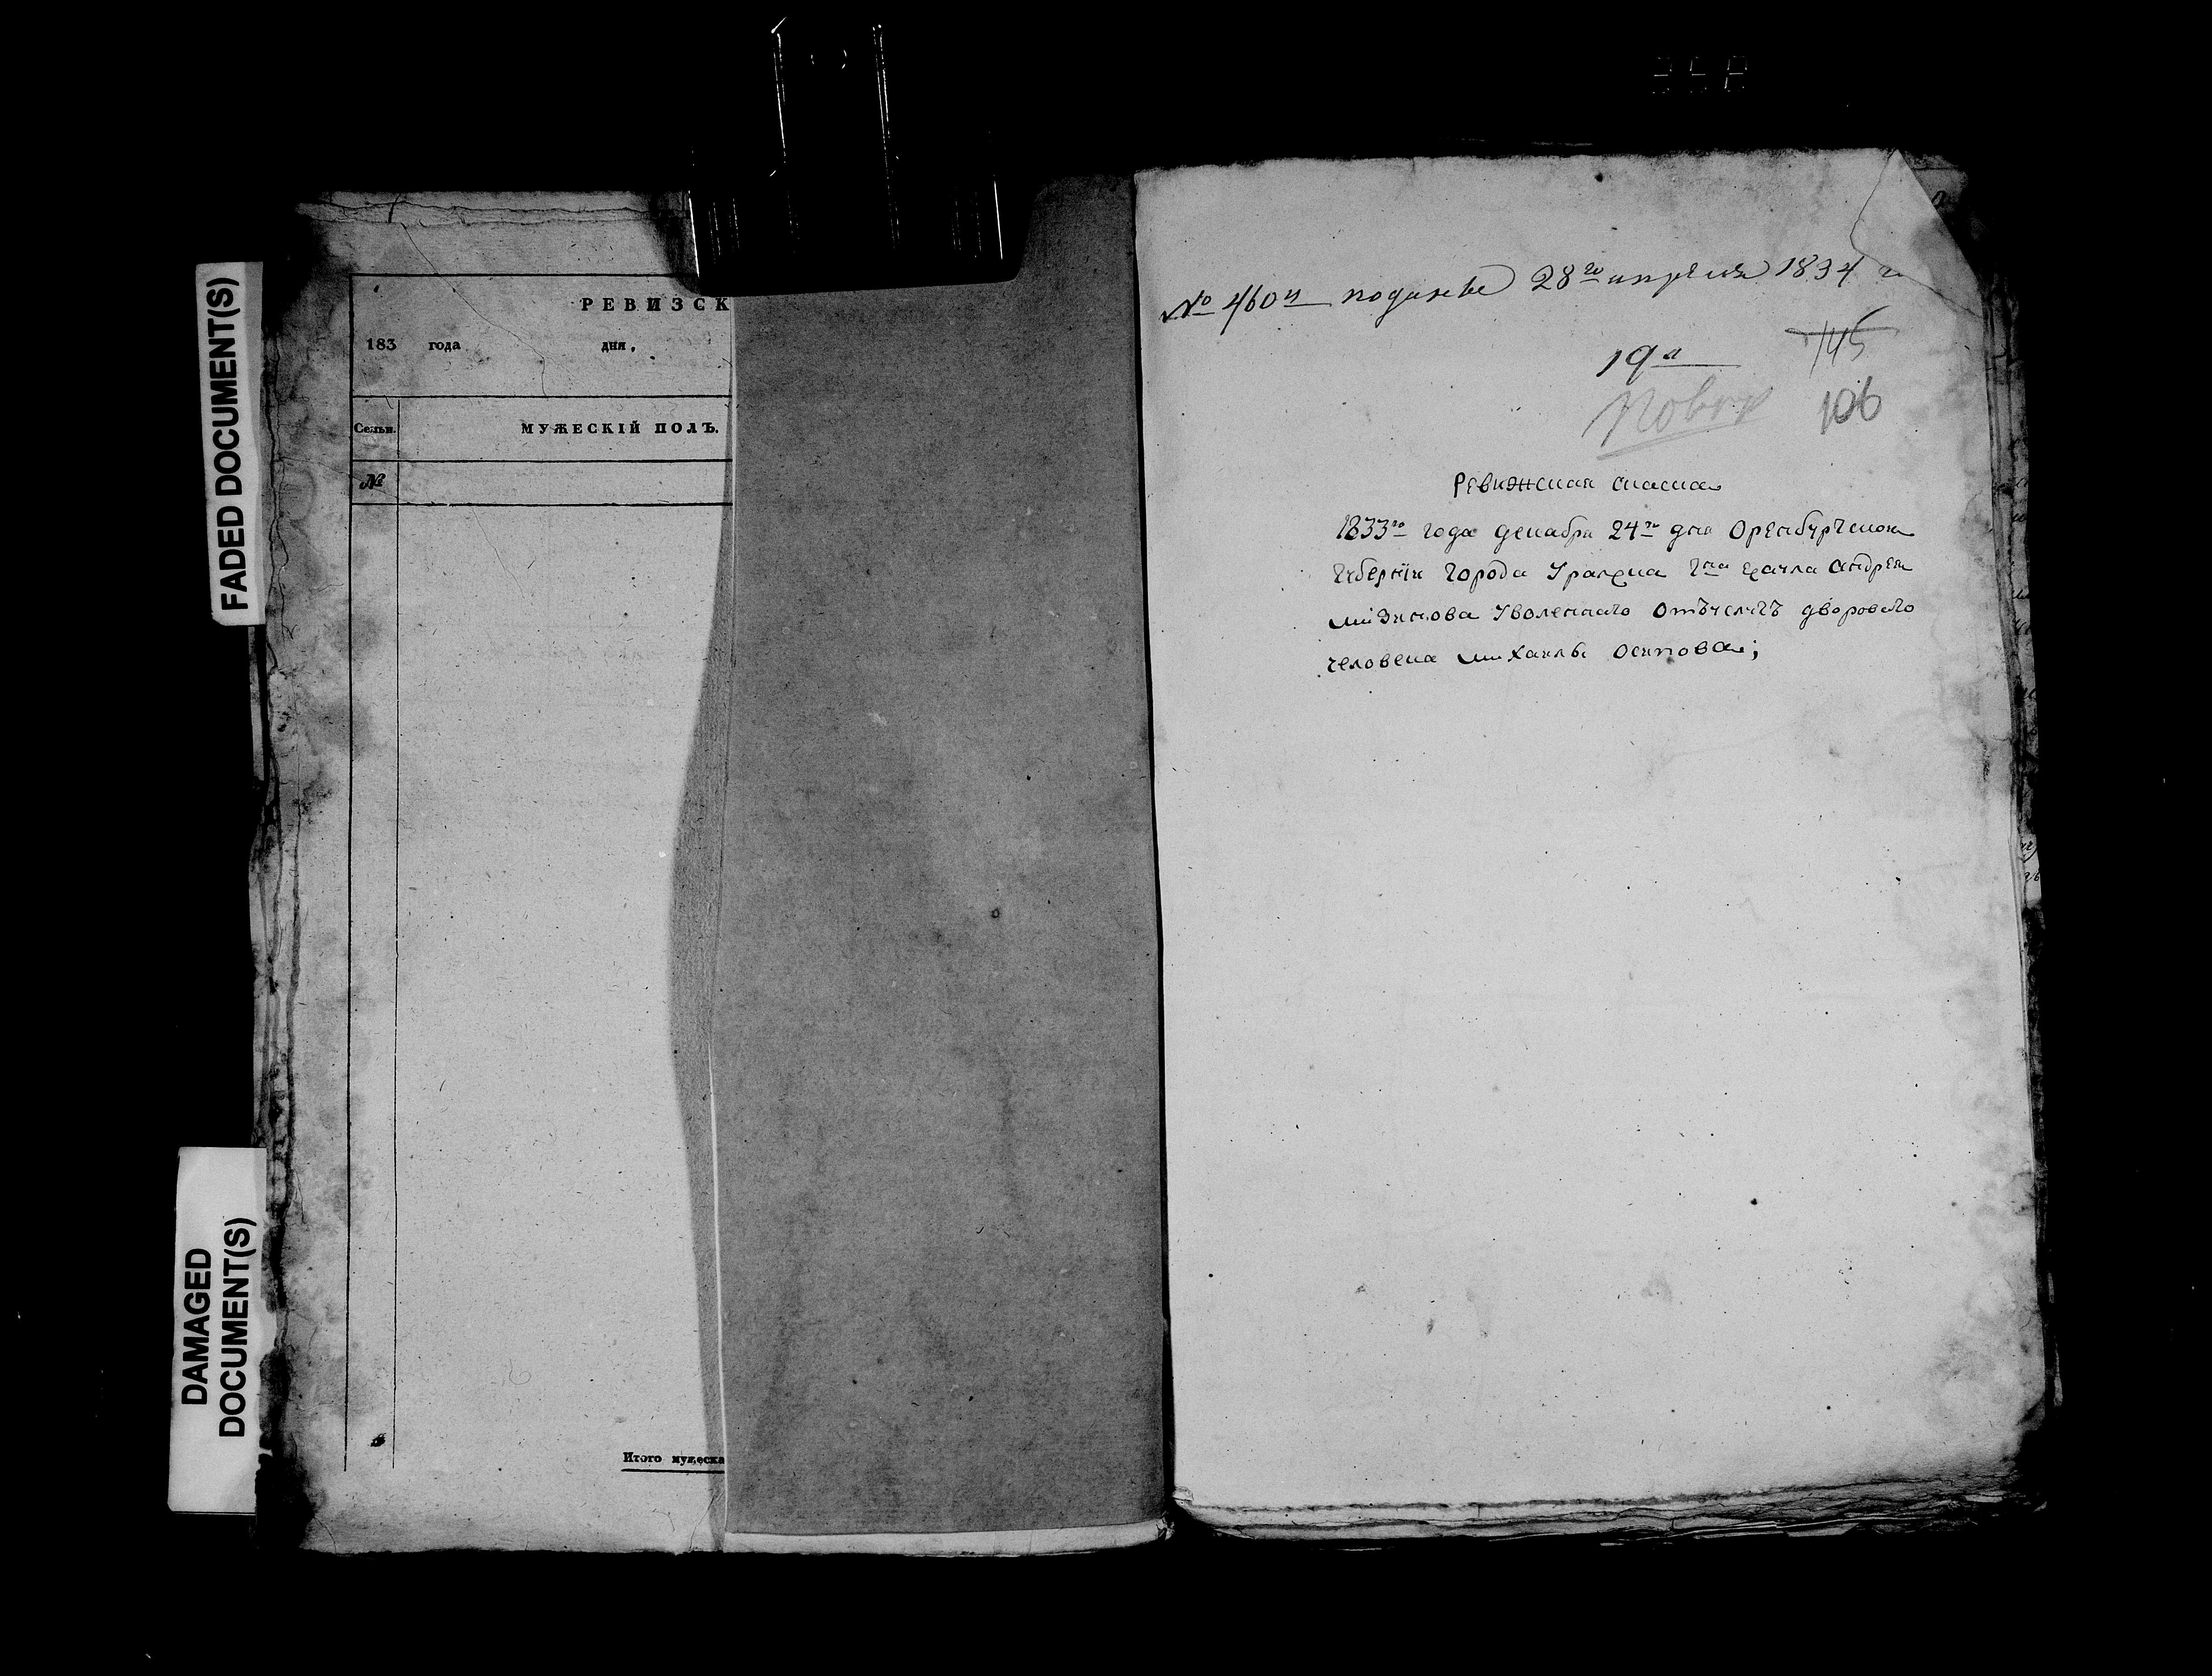 FADED DOCUMENT(S)
DAMAGED
DOCUMENT(S)
РЕВИЗСК
183 года дня,
Сельи. МУЖЕСКІЙ ПОЛЪ.
№
Итого мужеска
№ 460й 28го апреля 1834 г
19я 145
106
Ревижская скаска
1833го года декабря 24го дня Оренбургской
губернїи города Уралска Андрея
мизинова Уволенаго дворового
человека михаилы осипова;